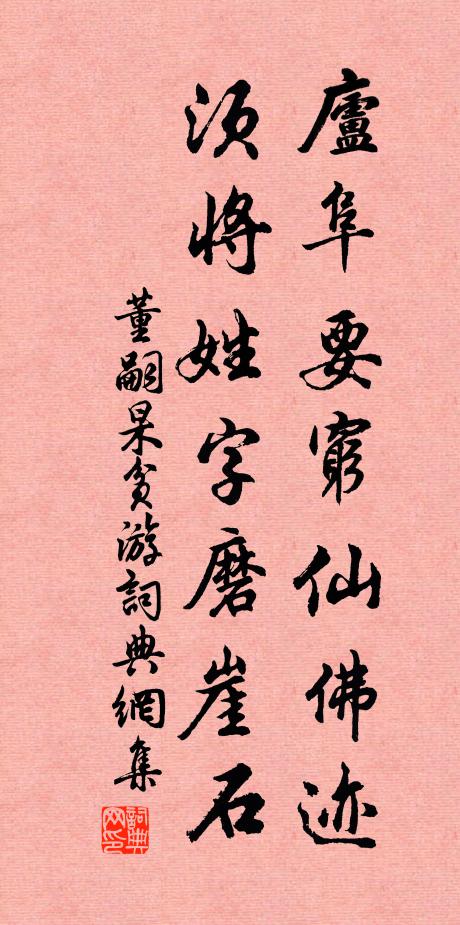 廬阜要窮仙佛迹
須將姓字磨崖石
董嗣杲貧游詞典網集
詞典网印